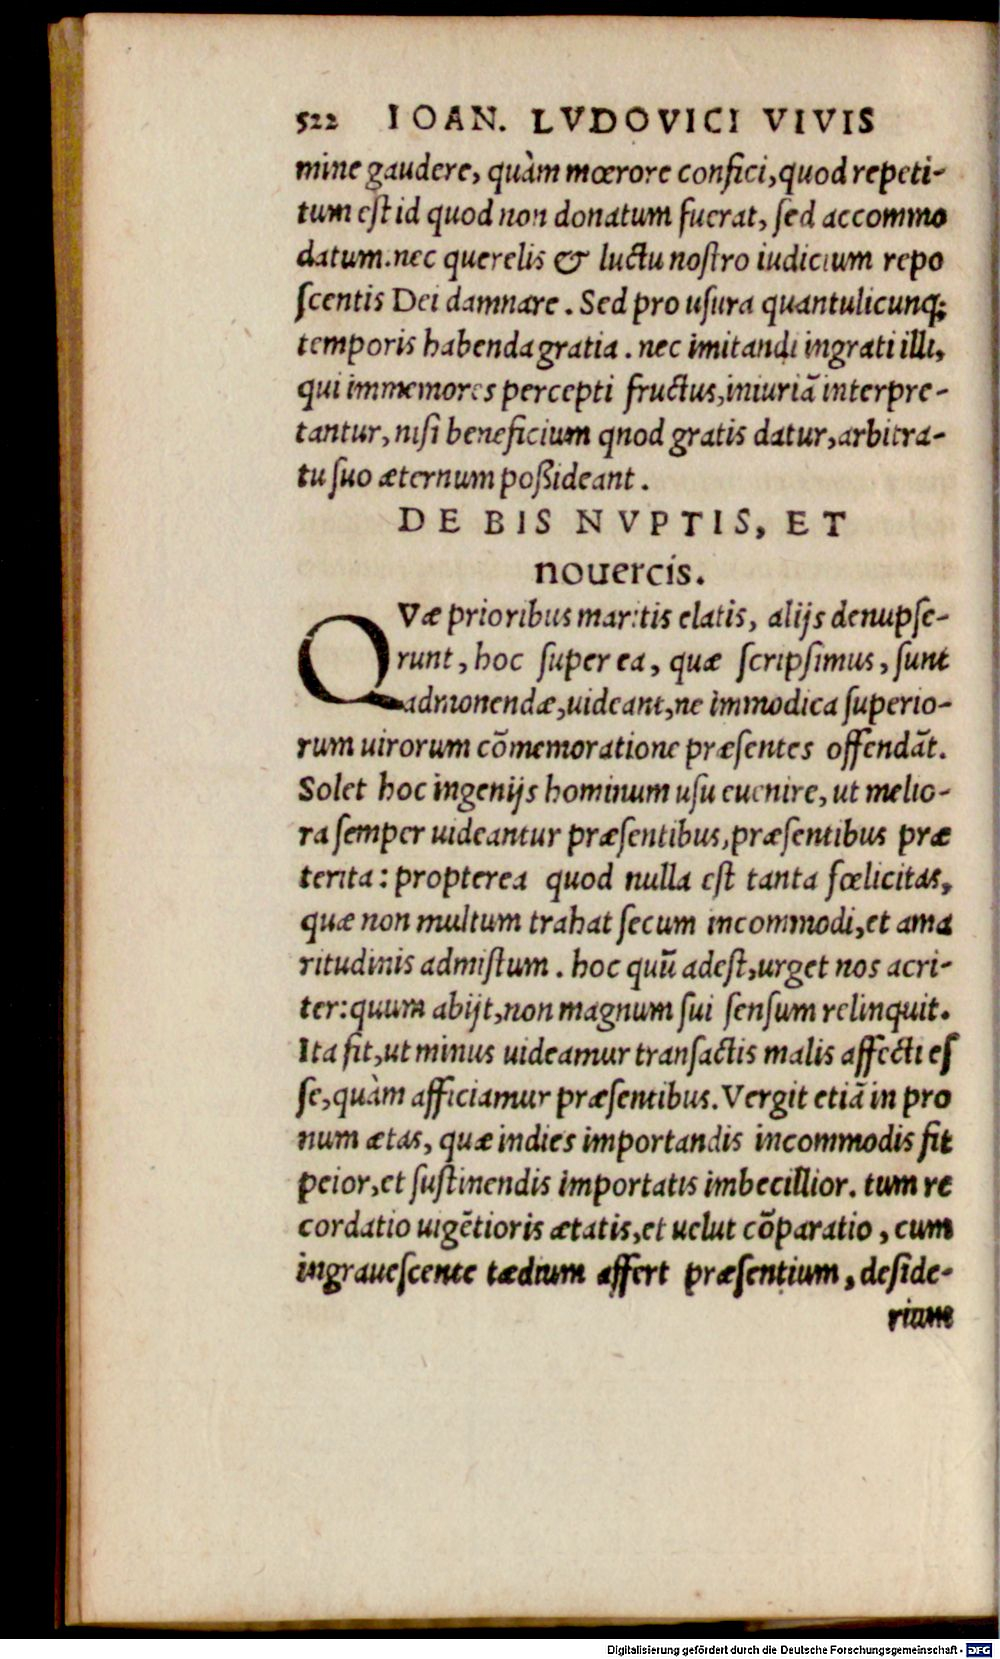 522 IOAN. LVDOVICI VIVIS
mine gaudere, quàm mœrore confici, quod repeti-
tum est id quod non donatum fuerat, sed accommo
datum. nec querelis & luctu nostro iudicium repo
scentis Dei damnare. Sed pro usura quantulicunq;
temporis habenda gratia. nec imitandi ingrati illi,
qui immemores percepti fructus, iniuriã interpre-
tantur, nisi beneficium qnod gratis datur, arbitra-
tu suo æternum poßideant.
DE BIS NVPTIS, ET
nouercis.
QVæ prioribus maritis elatis, alijs denupse-
runt, hoc super ea, quæ scripsimus, sunt
admonendæ, uideant, ne immodica superio-
rum uirorum cõmemoratione præsentes offendãt.
Solet hoc ingenijs hominum usu euenire, ut melio-
ra semper uideantur præsentibus, præsentibus præ
terita: propterea quod nulla est tanta fœlicitas,
quæ non multum trahat secum incommodi, et ama
ritudinis admistum. hoc quũ adest, urget nos acri-
ter: quum abijt, non magnum sui sensum relinquit.
Ita fit, ut minus uideamur transactis malis affecti es
se, quàm afficiamur præsentibus. Vergit etiã in pro
num ætas, quæ indies importandis incommodis fit
peior, et sustinendis importatis imbecillior. tum re
cordatio uigẽtioris ætatis, et uelut cõparatio, cum
ingrauescente tædium affert præsentium, deside-
rium
Digitalisierung gefördert durch die Deutsche Forschungsgemeinschaft - DFG